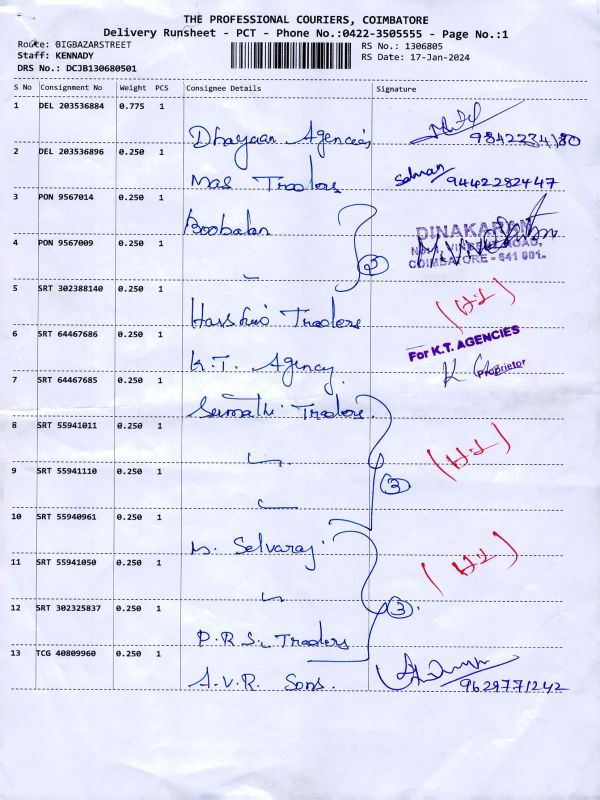 THE PROFESSIONAL COURIERS, COIMBATORE
Delivery Runsheet - PCT - Phone No.:0422-3505555 - Page No.:1
Route: BIGBAZARSTREET
RS No.: 1306805
Staff: KENNADY
RS Date: 17-Jan-2024
DRS No.: DCJB130680501
S No Consignment No Weight PCS Consignee Details Signature
1 DEL 203536884 0.775 1 Dhayaan Agencies 9842234180
2 DEL 203536896 0.250 1 Mas Traders Salman 9442282447
3 PON 9567014 0.250 1 Boobalan DINAKARAN
4 PON 9567009 0.250 1 " 2 COIMBATORE - 641 001.
5 SRT 302388140 0.250 1 Traders
6 SRT 64467686 0.250 1 K.T. Agency For K.T. AGENCIES
Proprietor
7 SRT 64467685 0.250 1 Sumathi Traders
8 SRT 55941011 0.250 1 "
9 SRT 55941110 0.250 1 " 3
10 SRT 55940961 0.250 1 N. Selvaraj
11 SRT 55941050 0.250 1 "
12 SRT 302325837 0.250 1 P.R.S. Traders 3
13 TCG 40809960 0.250 1 A.V.R. Sons. 9629771242